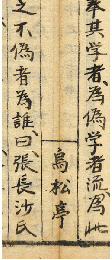 奉其学者為偽学者流為此
烏松亭
之不偽者為誰曰張長沙氏